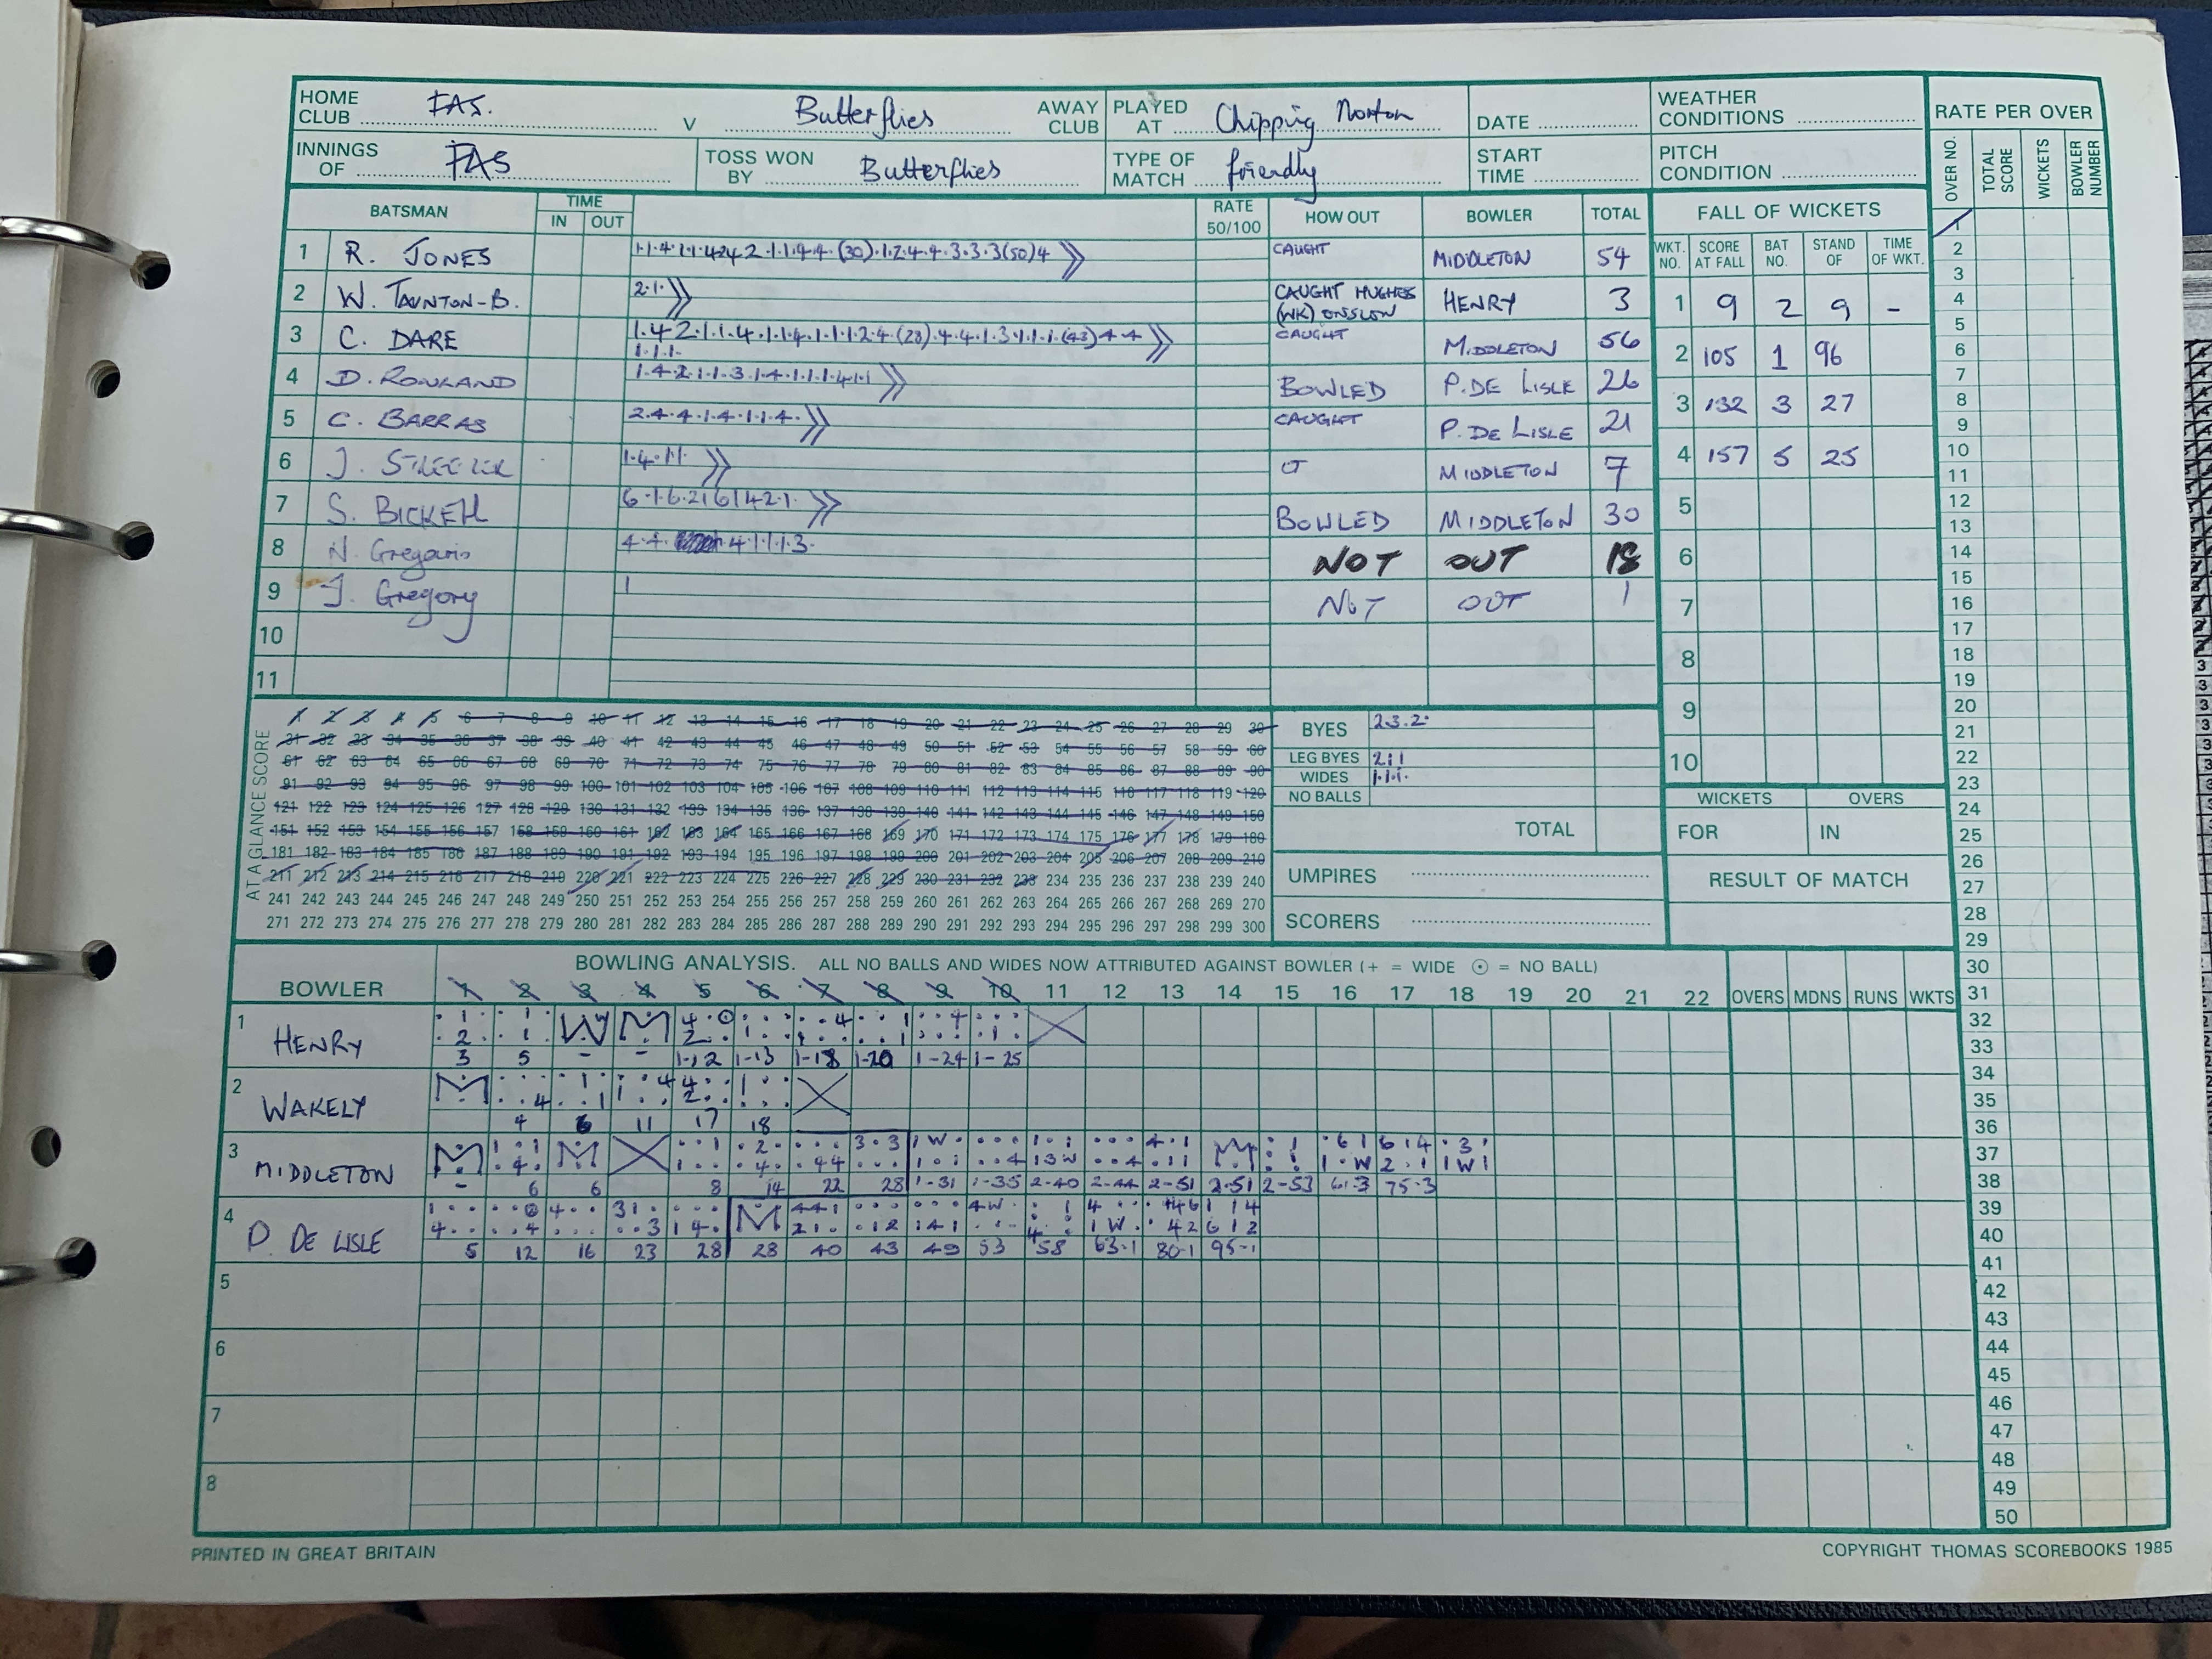 HOME CLUB FAS. V Butterflies AWAY CLUB PLAYED AT Chipping Norton DATE WEATHER CONDITIONS RATE PER OVER
INNINGS OF FAS TOSS WON BY Butterflies TYPE OF MATCH friendly START TIME PITCH CONDITION
OVER NO. TOTAL SCORE WICKETS BOWLER NUMBER
BATSMAN TIME IN OUT RATE 50/100 HOW OUT BOWLER TOTAL FALL OF WICKETS
WKT. NO. SCORE AT FALL BAT NO. STAND OF TIME OF WKT.
1 R. JONES CAUGHT MIDDLETON 54
2 W. TAUNTON-B. 2.1 CAUGHT HUGHES (WK) ONSLOW HENRY 3
3 C. DARE CAUGHT MIDDLETON 56
4 D. ROWLAND 1.4.2.1.1.3.1.4.1.1.1.4.1.1 BOWLED P. DE LISLE 26
5 C. BARRAS 2.4.4.1.4.1.1.4. CAUGHT P. DE LISLE 21
6 J. 1.4.1.1. CT MIDDLETON 7
7 S. BICKELL 6.1.6.2161421. BOWLED MIDDLETON 30
8 N. 4.4. 4.1.1.1.3. NOT OUT 18
9 J. Gregory 1 NOT OUT 1
10
11
1 9 2 9 -
2 105 1 96
3 132 3 27
4 157 5 25
5
6
7
8
9
10
AT A GLANCE SCORE
1 2 3 4 5 6 7 8 9 10 11 12 13 14 15 16 17 18 19 20 21 22 23 24 25 26 27 28 29 30
31 32 33 34 35 36 37 38 39 40 41 42 43 44 45 46 47 48 49 50 51 52 53 54 55 56 57 58 59 60
61 62 63 64 65 66 67 68 69 70 71 72 73 74 75 76 77 78 79 80 81 82 83 84 85 86 87 88 89 90
91 92 93 94 95 96 97 98 99 100 101 102 103 104 105 106 107 108 109 110 111 112 113 114 115 116 117 118 119 120
121 122 123 124 125 126 127 128 129 130 131 132 133 134 135 136 137 138 139 140 141 142 143 144 145 146 147 148 149 150
151 152 153 154 155 156 157 158 159 160 161 162 163 164 165 166 167 168 169 170 171 172 173 174 175 176 177 178 179 180
181 182 183 184 185 186 187 188 189 190 191 192 193 194 195 196 197 198 199 200 201 202 203 204 205 206 207 208 209 210
211 212 213 214 215 216 217 218 219 220 221 222 223 224 225 226 227 228 229 230 231 232 233 234 235 236 237 238 239 240
241 242 243 244 245 246 247 248 249 250 251 252 253 254 255 256 257 258 259 260 261 262 263 264 265 266 267 268 269 270
271 272 273 274 275 276 277 278 279 280 281 282 283 284 285 286 287 288 289 290 291 292 293 294 295 296 297 298 299 300
BYES 2.3.2.
LEG BYES 2.1.1
WIDES 1.1.1.
NO BALLS
TOTAL
UMPIRES
SCORERS
WICKETS OVERS
FOR IN
RESULT OF MATCH
BOWLING ANALYSIS. ALL NO BALLS AND WIDES NOW ATTRIBUTED AGAINST BOWLER (+ = WIDE ⊙ = NO BALL)
BOWLER 1 2 3 4 5 6 7 8 9 10 11 12 13 14 15 16 17 18 19 20 21 22 OVERS MDNS RUNS WKTS
1 HENRY W M
3 5 - - 1-12 1-13 1-18 1-20 1-24 1-25
2 WAKELY M
4 6 11 17 18
3 MIDDLETON M M M
- 6 6 8 14 22 28 1-31 1-35 2-40 2-44 2-51 2-51 2-53 61-3 75-3
4 P. DE LISLE M
5 12 16 23 28 28 40 43 49 53 58 63-1 80-1 95-1
5
6
7
8
1
2
3
4
5
6
7
8
9
10
11
12
13
14
15
16
17
18
19
20
21
22
23
24
25
26
27
28
29
30
31
32
33
34
35
36
37
38
39
40
41
42
43
44
45
46
47
48
49
50
PRINTED IN GREAT BRITAIN COPYRIGHT THOMAS SCOREBOOKS 1985